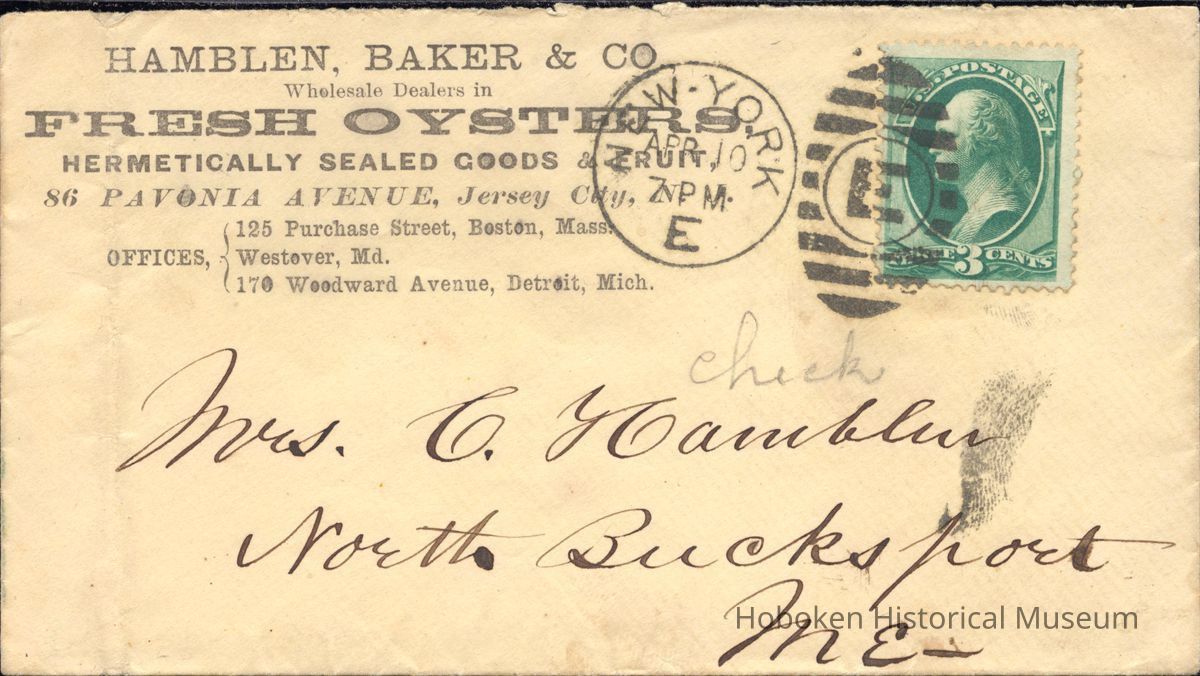 HAMBLEN, BAKER & CO.
Wholesale Dealers in
FRESH OYSTERS,
HERMETICALLY SEALED GOODS & FRUIT,
86 PAVONIA AVENUE, Jersey City, N.
OFFICES,
125 Purchase Street, Boston, Mass.
Westover, Md.
170 Woodward Avenue, Detroit, Mich.
NEW-YORK
APR 10
7 PM
E
E
U.S. POSTAGE
3 CENTS
check
Mrs. C. Hamblen
North Bucksport
Me-
Hoboken Historical Museum